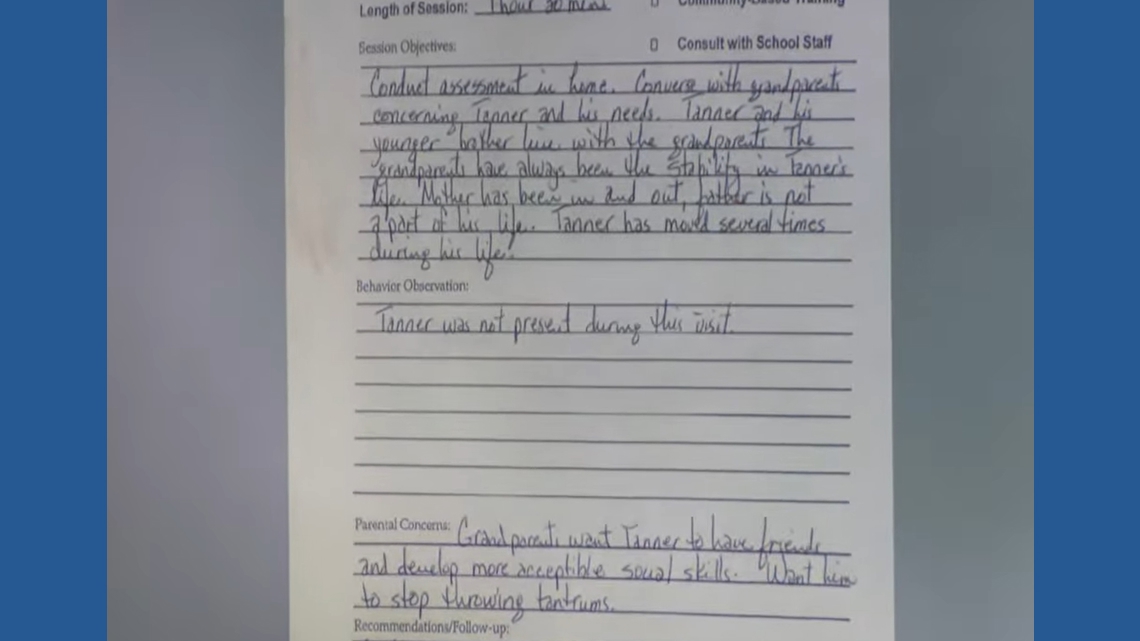 Length of Session: 1 hour 30 mins
Session Objectives: Consult with School Staff
Conduct assessment in home. Converse with grandparents
concerning Tanner and his needs. Tanner and his
younger brother live with the grandparents The
grandparents have always been the stability in Tanner's
life. Mother has been in and out, father is not
a part of his life. Tanner has moved several times
during his life.
Behavior Observation:
Tanner was not present during this visit.
Parental Concerns: Grandparents want Tanner to have friends
and develop more acceptible social skills. Want him
to stop throwing tantrums.
Recommendations/Follow-up: